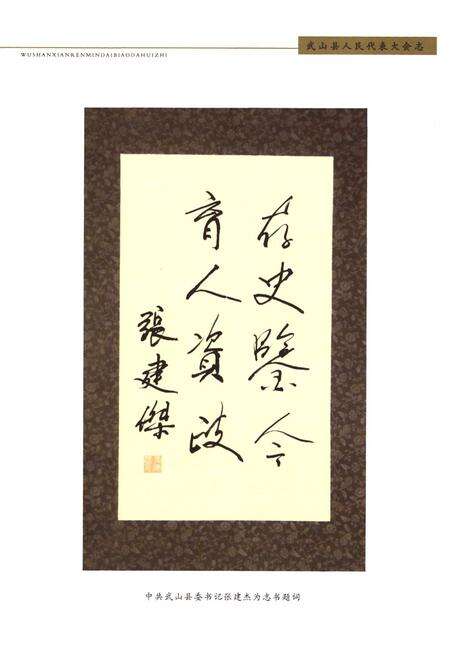 武山县人民代表大会志
WUSHANXIANRENMINDAIBIAODAHUIZHI
存史鑒今
育人資政
張建傑
中共武山县委书记张建杰为志书题词